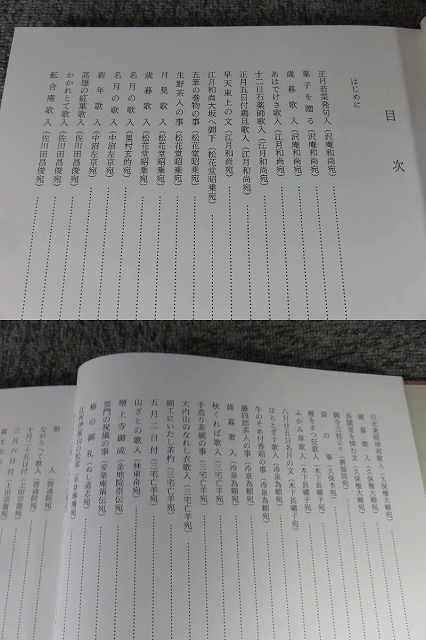 目次
はじめに
正月若菜発句入(沢庵和尚宛)
菓子を贈る(沢庵和尚宛)
歳暮歌入(沢庵和尚宛)
あはでけさ歌入(江月和尚宛)
十二日石薬師歌入(江月和尚宛)
正月五日付鶏旦歌入(江月和尚宛)
早天東上の文(江月和尚宛)
江月和尚大坂へ御下(松花堂昭乗宛)
五筆の巻物の事(松花堂昭乗宛)
生野茶入の事(松花堂昭乗宛)
月見歌入(松花堂昭乗宛)
歳暮歌入(松花堂昭乗宛)
名月の歌入(里村玄的宛)
名月の歌入(中沼左京宛)
新年歌入(中沼左京宛)
高雄の紅葉歌入(佐川田昌俊宛)
かかれとて歌入(佐川田昌俊宛)
転合庵歌入(佐川田昌俊宛)
歳暮歌入(久保権大輔宛)
長闇堂を悼む文(久保権大輔宛)
袋の事(久保杢宛)
雁をまつ狂歌入(木下長嘯子宛)
ふかみ草歌入(木下長嘯子宛)
八月廿五日名月の文(木下長嘯子宛)
ほととぎす歌入(冷泉為頼宛)
牛のそめ付香箱の事(冷泉為頼宛)
藤四郎茶入の事(冷泉為頼宛)
歳暮歌入(冷泉為頼宛)
秋くれば歌入(三宅亡羊宛)
手造り茶碗の事(三宅亡羊宛)
大内山のなれし衣歌入(三宅亡羊宛)
細工にいたし茶杓(三宅亡羊宛)
五月二日付(三宅亡羊宛)
山ざとの歌入(林東舟宛)
増上寺御成(金地院崇伝宛)
雲門の祝儀の事(安楽庵策伝宛)
椿の御礼(ぬし道志宛)
歌入
ながらへて歌入
十月二十五日付
三月六日付
富士山